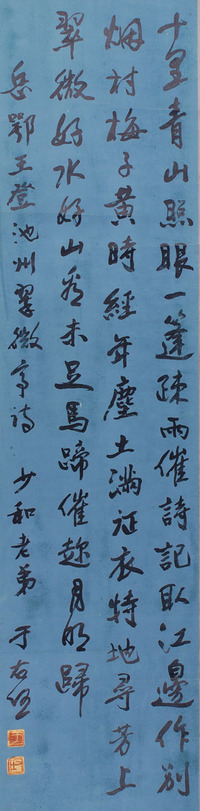 十里青山照眼一篷疎雨催詩記取江邊作別
烟村梅子黃時經年塵土滿征衣特地尋芳上
翠微好水好山看未足馬蹄催趁月明歸
岳鄂王登池州翠微亭詩 少和老弟 于右任